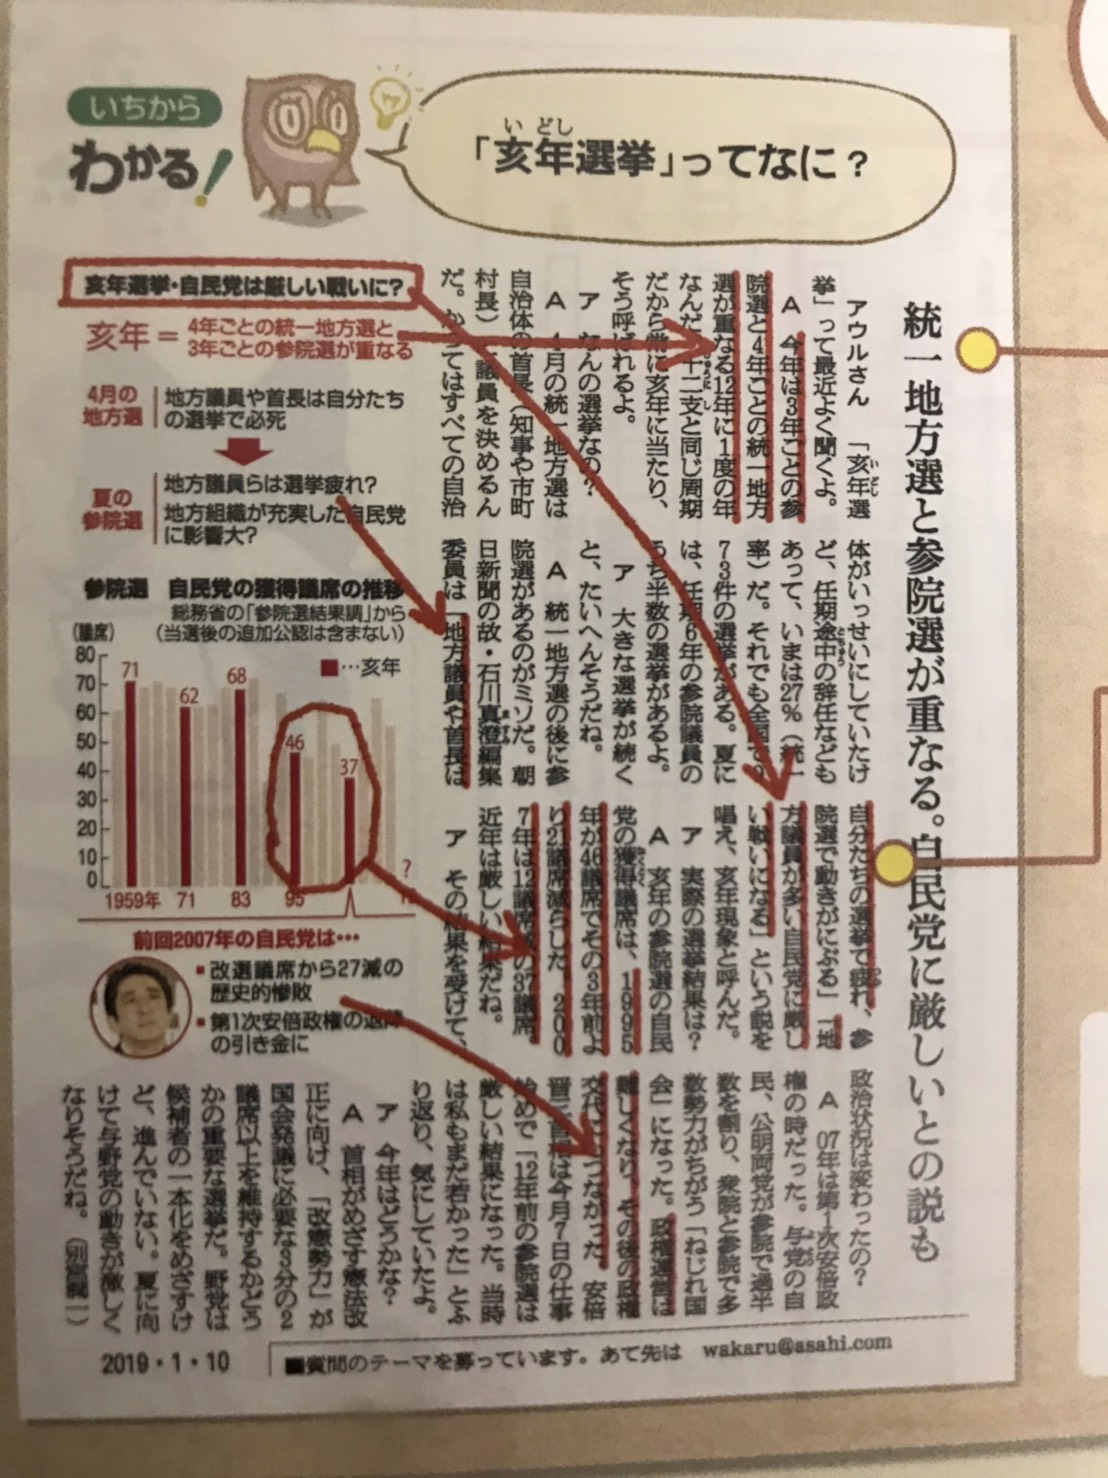 いちから
わかる!
「亥年選挙」ってなに?
いどし
統一地方選と参院選が重なる。自民党に厳しいとの説も
アウルさん 「亥年選
挙」って最近よく聞くよ。
A 今年は3年ごとの参
院選と4年ごとの統一地方
選が重なる12年に1度の年
なんだ。十二支と同じ周期
だから常に亥年に当たり、
そう呼ばれるよ。
ア なんの選挙なの?
A 4月の統一地方選は
自治体の首長(知事や市町
村長)と議員を決めるん
だ。かつてはすべての自治
体がいっせいにしていたけ
ど、任期途中の辞任なども
あって、いまは27%(統一
率)だ。それでも全国で9
73件の選挙がある。夏に
は、任期6年の参院議員の
うち半数の選挙があるよ。
ア 大きな選挙が続く
と、たいへんそうだね。
A 統一地方選の後に参
院選があるのがミソだ。朝
日新聞の故・石川真澄編集
委員は「地方議員や首長は
自分たちの選挙で疲れ、参
院選で動きがにぶる」「地
方議員が多い自民党に厳し
い戦いになる」という説を
唱え、亥年現象と呼んだ。
ア 実際の選挙結果は?
A 亥年の参院選の自民
党の獲得議席は、1995
年が46議席でその3年前よ
り21議席減らした。200
7年は12議席減の37議席。
近年は厳しい結果だね。
ア その結果を受けて、
政治状況は変わったの?
A 07年は第1次安倍政
権の時だった。与党の自
民、公明両党が参院で過半
数を割り、衆院と参院で多
数勢力がちがう「ねじれ国
会」になった。政権運営は
難しくなり、その後の政権
交代につながった。安倍
晋三首相は今月7日の仕事
始めで「12年前の参院選は
厳しい結果になった。当時
は私もまだ若かった」とふ
り返り、気にしていたよ。
ア 今年はどうかな?
A 首相がめざす憲法改
正に向け、「改憲勢力」が
国会発議に必要な3分の2
議席以上を維持するかどう
かの重要な選挙だ。野党は
候補者の一本化をめざすけ
ど、進んでいない。夏に向
けて与野党の動きが激しく
なりそうだね。
亥年選挙・自民党は厳しい戦いに?
亥年=4年ごとの統一地方選と
3年ごとの参院選が重なる
4月の
地方選
地方議員や首長は自分たち
の選挙で必死
夏の
参院選
地方議員らは選挙疲れ?
地方組織が充実した自民党
に影響大?
参院選 自民党の獲得議席の推移
総務省の「参院選結果調」から
(当選後の追加公認は含まない)
(議席)
■…亥年
80
70
60
50
40
30
20
10
0
71
62
68
46
37
?
1959年 71 83 95
前回2007年の自民党は…
■改選議席から27減の
歴史的惨敗
■第1次安倍政権の退陣
の引き金に
2019・1・10
■質問のテーマを募っています。あて先は wakaru@asahi.com